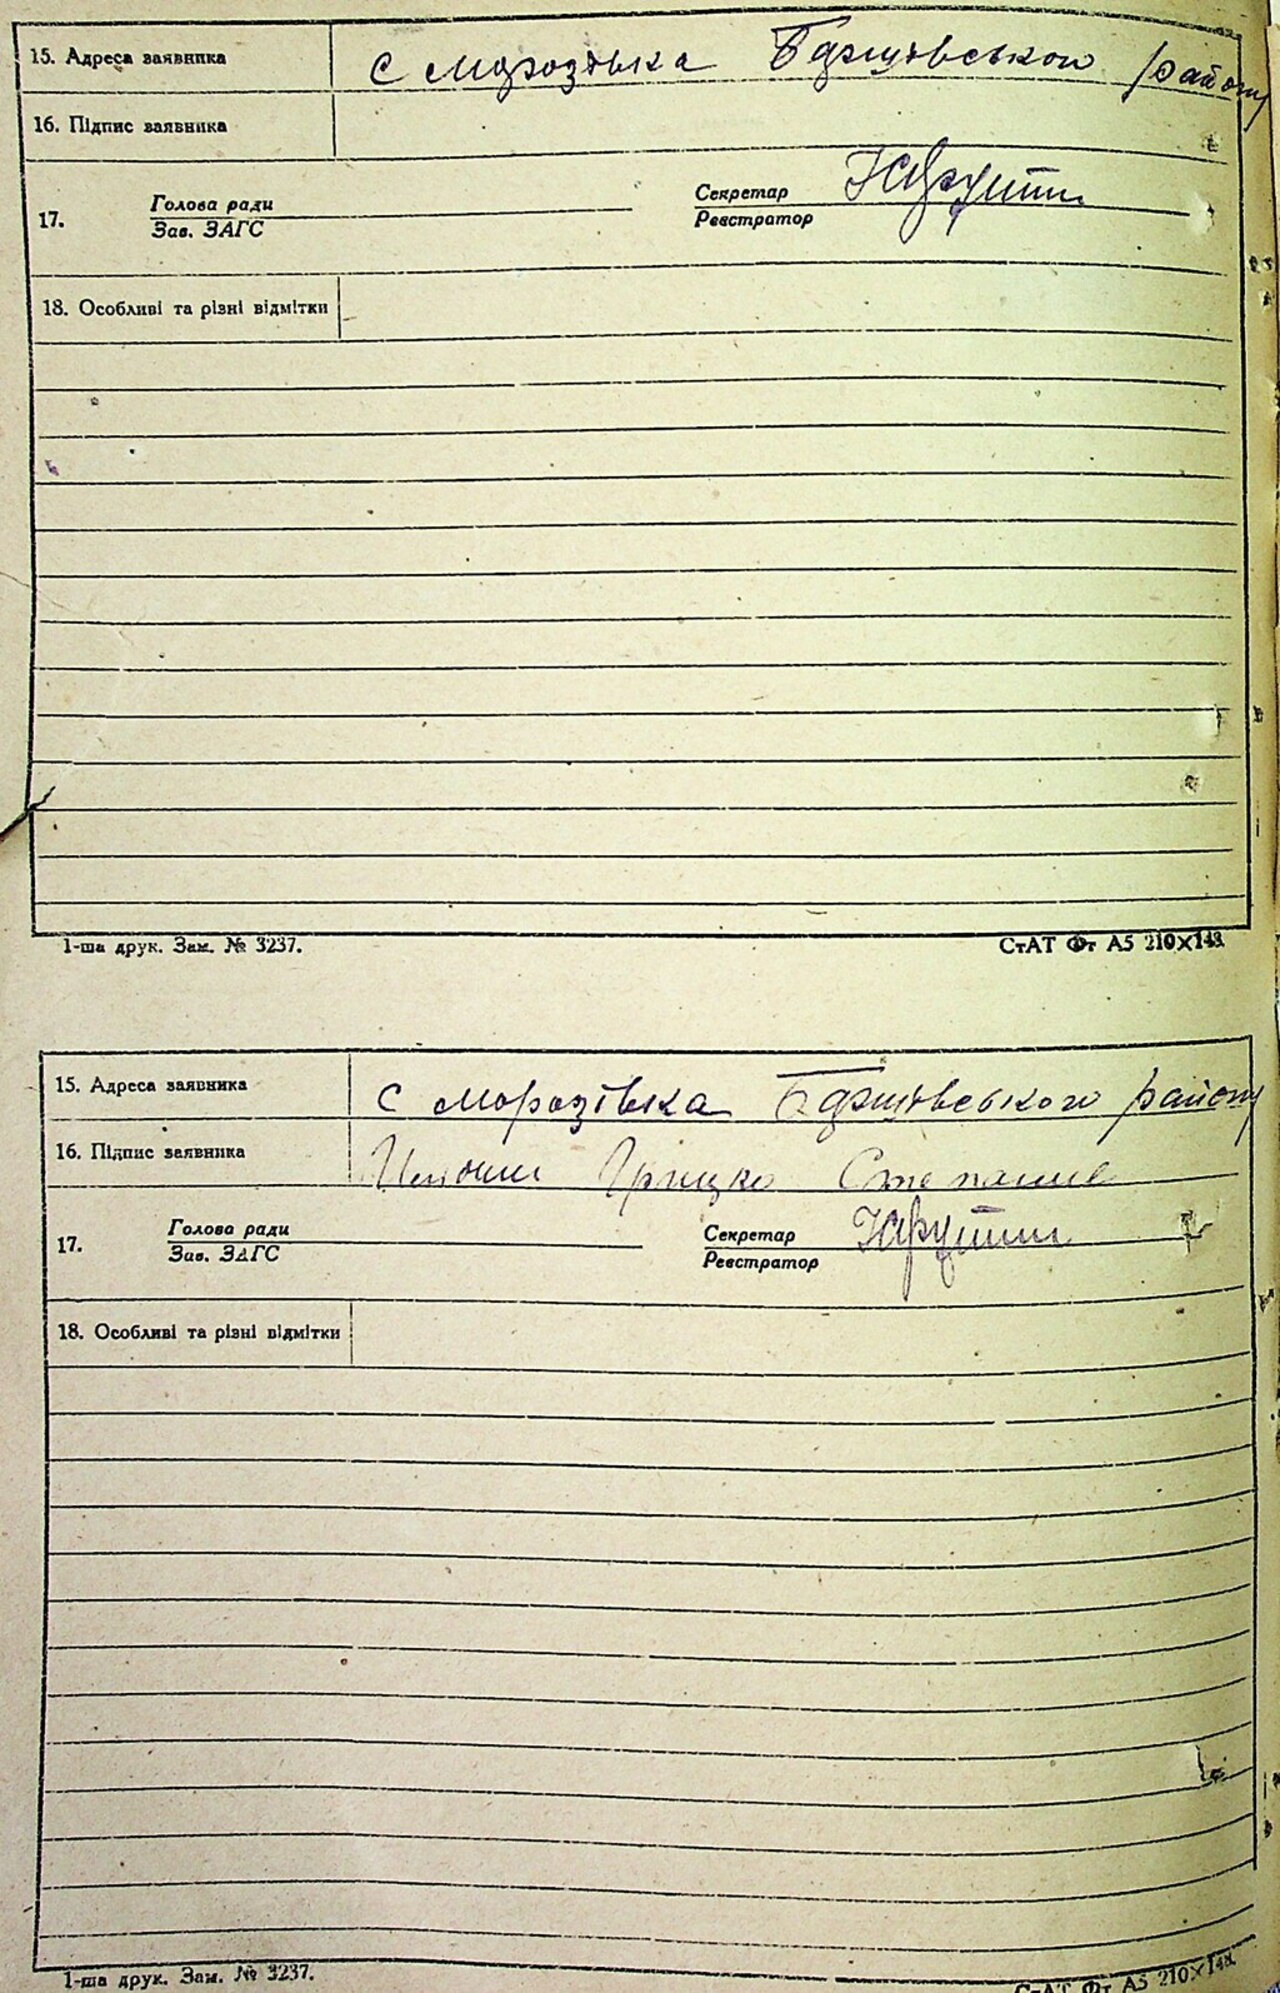 15. Адреса заявника с Морозівка Баришівського району
16. Підпис заявника
17. Голова ради Секретар
Зав. ЗАГС Реєстратор
18. Особливі та різні відмітки
1-ша друк. Зам. № 3237. СтАТ Фт А5 210×148.
15. Адреса заявника с Морозівка Баришівського району
16. Підпис заявника Грицко
17. Голова ради Секретар
Зав. ЗАГС Реєстратор
18. Особливі та різні відмітки
1-ша друк. Зам. № 3237. СтАТ Фт А5 210×148.